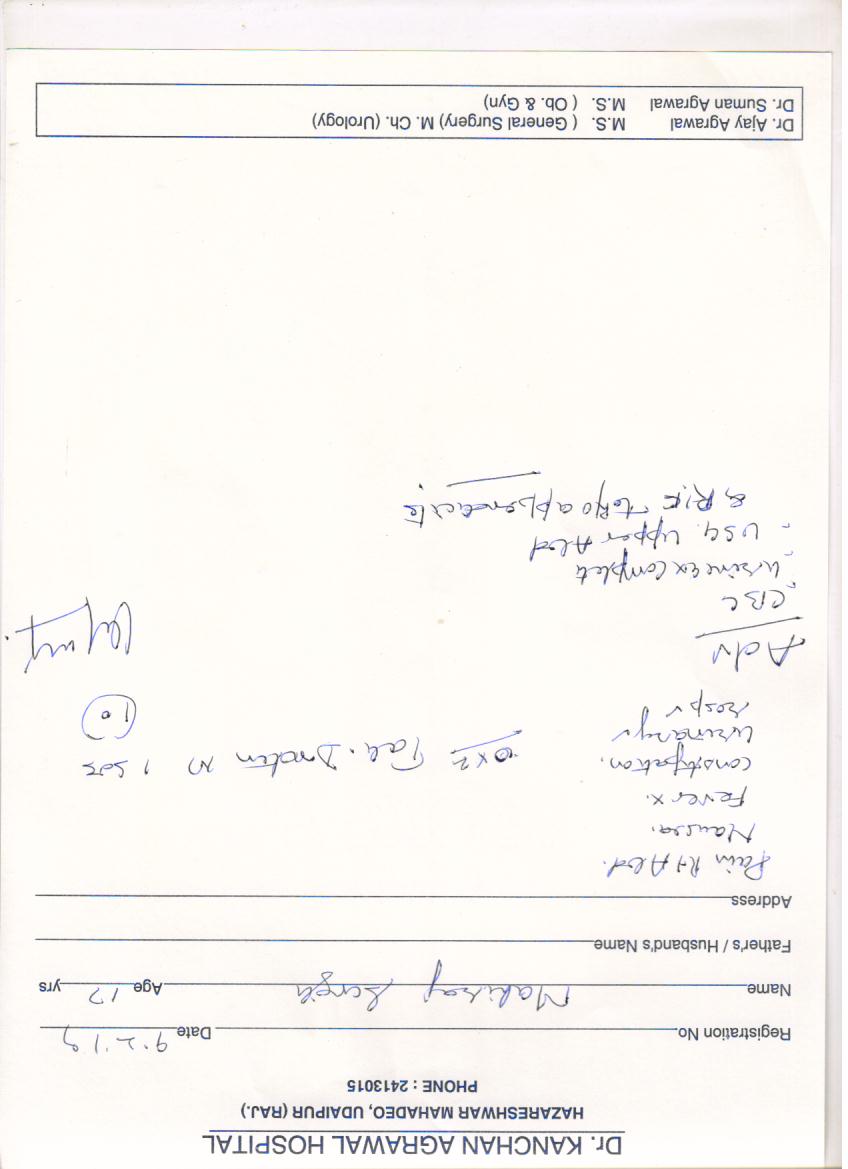 Dr. KANCHAN AGRAWAL HOSPITAL
HAZARESHWAR MAHADEO, UDAIPUR (RAJ.)
PHONE : 2413015
Registration No. Date 9.2.19
Name Mahiraj Singh Age 17 yrs
Father's / Husband's Name
Address
Pain Rt Abd.
Nausea.
Fever x.
Constipation. Tab. Drotin M 1 SOS
Urinary
Adv
- CBC
- Urine Ex Complete
- USG. Upper Abd
& RIF to R/o appendicitis
Dr. Ajay Agrawal M.S. ( General Surgery) M. Ch. (Urology)
Dr. Suman Agrawal M.S. ( Ob. & Gyn)